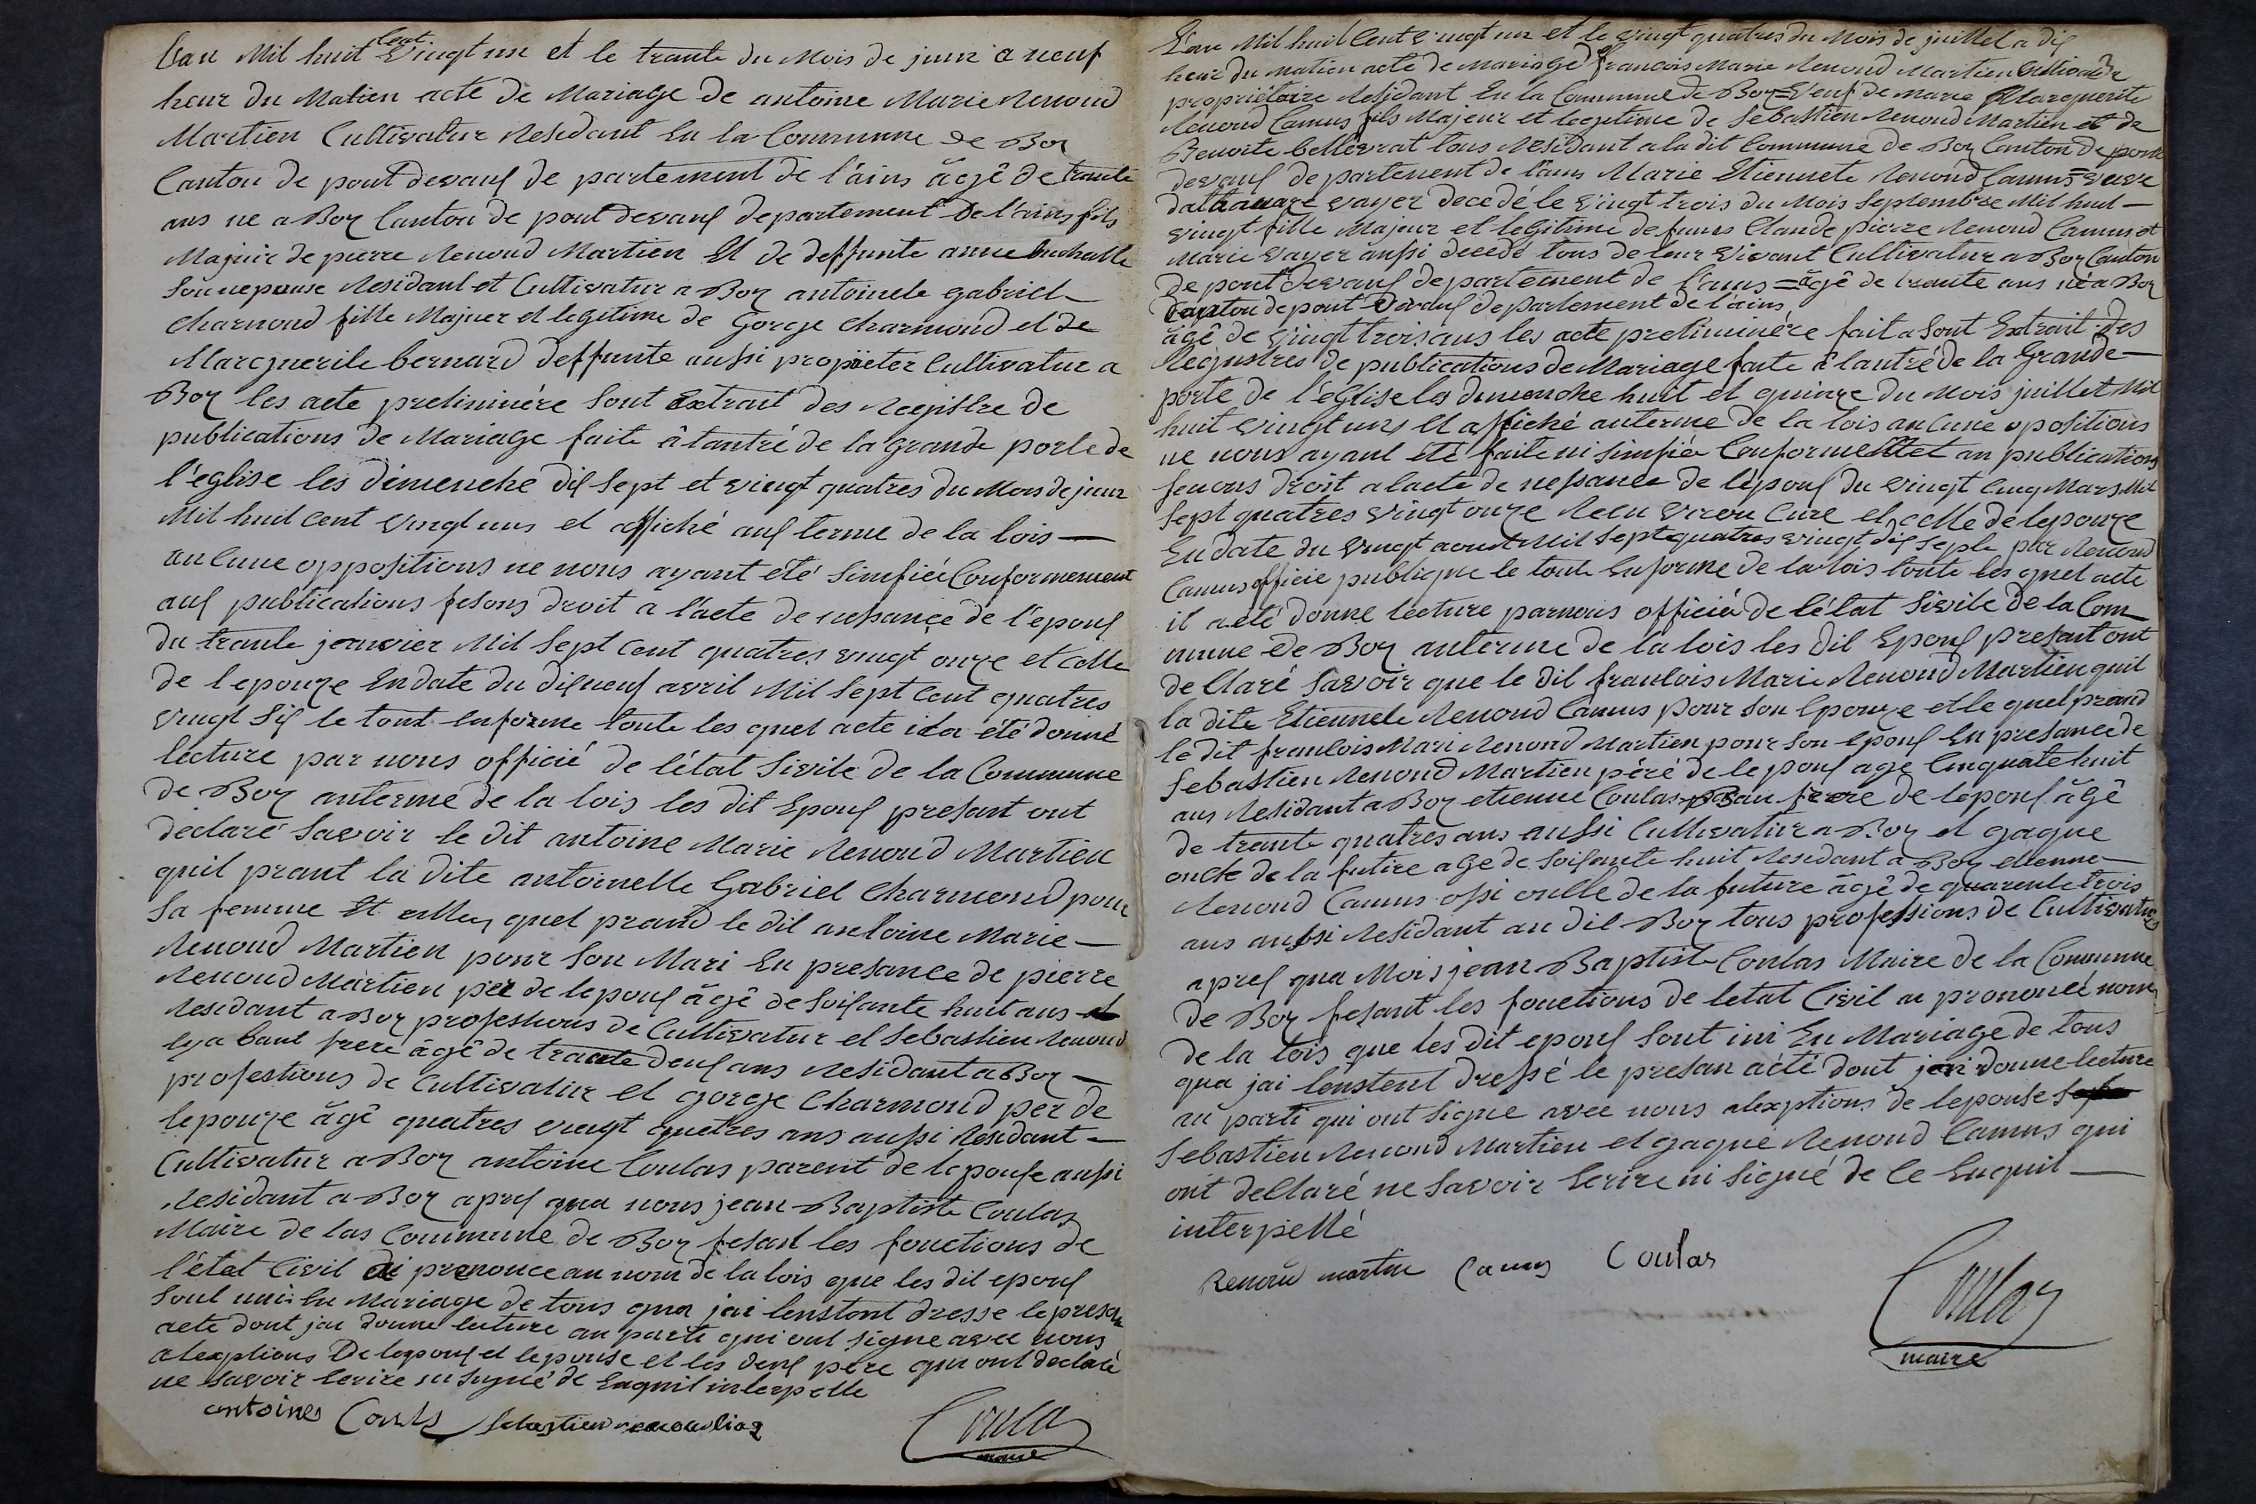 L'an Mil huit Cent Vingt un et le trante du Mois de juin a neuf
heur du Matien acte de Mariage de antoine Marie Renoud
Martien Cultivatur Residant En la Commune de Boz
Canton de pont devaux de partement de l'ains âgê de trante
ans ne a Boz Canton de pont devaux departement de l'ains fils
Majeur de pierre Renoud Martien Et de deffunte anne
Son nepouse Residant et Cultivatur a Boz antoinete gabriel
Charnond fille Majuer et legitime de Gorge Charmond et de
Margueritte bernard deffunte aussi propieter Cultivatur a
Boz les acte preliminére Sont Extrait des Registre de
publications de Mariage faite â lantré de la Grande porte de
l'église les dimenche dix sept et vingt quatres du Mois de juin
Mil huit Cent vingt uns et affiché aux terme de la lois
aucune oppositions ne nous ayant été Simfiée Conformement
aux publications fesons droit a l'acte de nessance de l'époux
du trante jenvier Mil Sept Cent quatres vingt onze et Celle
de lepouze En date du dixneuf avril Mil Sept Cent quatres
vingt Six le tout enforme toute les quel acte il a été donné
lecture par nous officié de l'état Sivile de la Commune
de Boz auterme de la lois les dit Epoux presant ont
déclaré Savoir le dit antoine Marie Renoud Martien
quil prant la dite antoinette Gabriel Charmond pour
Sa femme Et quel prand le dit antoine Marie
Renoud Martien pour Son Mari En presance de pierre
Renoud Martien per de lepoux âgê de Soisante huit ans et
Residant a Boz professions de Cultivatur et Sebastien Renoud
frere âgê de trante deux ans Residant a Boz
professtions de Cultivatur et gorge Charmond per de
lepouze âgê quatres vingt quatres ans aussi Residant
Cultivatur a Boz antoine Coulas parent de lepouse aussi
Residant a Boz aprex qua nous jean Baptiste Coulas
Maire de las Commune de Boz fesant les fonctions de
l'état Civil ai prononce au nom de la lois que les dit epoux
Sont unis En Mariage de tous qua jai lenstant dresse le presan
acte dont jai donne lecture au parti qui ont Signe avec nous
alexptions De lepoux et lepouse et les deux pére qui ont declaré
ne Savoir Ecrire ni Signé de Enquil interpelle
antoines Couls Sebastien
Coulas
maire
L'an Mil huit Cent vingt un et le vingt quatres du Mois de juillet a dix
heur du Matien acte de Mariage de francois Marie Renoud Martien Cultivatur
propriétaire Residant En la Commune de Boz = Veuf de Marie Marguerite
Renoud Camus fils Majeur et legitime de Sebastien Renoud Martien et de
Benoite bellevrat tous Residant a la dit Commune de Boz Canton de pont
devaux de partement de l'ains Marie Etiennete Renoud Camus = veuve
vayer decedé le vingt trois du Mois Septembre Mil huit
vingt fille Majeur et legitime defunts Claude pierre Renoud Camus et
Marie vayer aussi decedé tous de leur vivant Cultivatur a Boz Canton
de pont devaux departement de l'ains = âgê de trante ans né a Boz
Canton de pont Devaux departement de l'ains
âgê de vingt trois ans les acte preliminére fait a Sont Extrait des
Registres de publications de Mariage faite â lantré de la Grande
porte de l'église les dimenche huit et quinze du Mois juillet Mil
huit vingt uns Et affiché auterme de la lois aucune opositions
ne nous ayant été faite ni Simfiée Conforme au publications
fesons droit a lacte de nessance de lépoux du vingt Cinq Mars Mil
Sept quatres vingt onze Recu Cure et celle de lepouze
En date du vingt aout Mil Sept quatres vingt dix Septe par Renoud
Camus officie publique le toute Enforme de la lois toute les quel acte
il a eté donne lecture parnous officié de létat Sivile de la Com
mune de Boz auterme de la lois les dit Epoux present ont
declaré Savoir que le dit francois Marie Renoud Martien quil
la dite Etiennete Renoud Camus pour Son epouze et le quel prand
le dit francois Mari Renoud Martien pour Son epoux En presance de
Sebastien Renoud Martien péré de lepoux age Cinquate huit
ans Residant a Boz etienne Coulas Bau frere de lepoux âgê
de trante quatres ans aussi Cultivatur a Boz et gaque
oncle de la future age de Soisante huit Residant a Boz etienne
Renoud Camus ossi onlle de la future âgê de quarente trois
ans aussi Residant au dit Boz tous professions de Cultivatur
aprex qua Mois jean Baptiste Coulas Maire de la Commune
de Boz fesant les fonctions de letat Civil a prononcé nom
de la lois que les dit epoux Sont ini En Mariage de tous
qua jai lenstent dressé le presan acté dont jai donne lecture
au parti qui ont Signe avec nous alexptions de lepouse
Sebastien Renoud Martien et gaque Renoud Camus qui
ont dellaré ne Savoir Ecrire ni Signé de Ce Enquil
interpellé
Renoud martin Camus Coulas
Coulas
maire